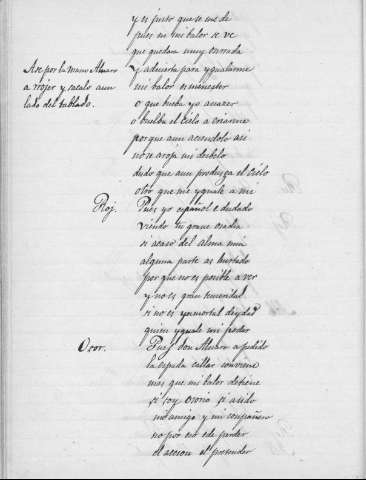 y es justo que se me de
pues en mi balor se ve
que quedara muy onrrada
Ase por la mano Alvaro
a rojer y sacalo a un
lado del tablado.
y advierta para ygualarme
mi balor es menester
o que buelba yo a nacer
o buelba el cielo a criarme
porque aun aciendolo asi
no se aroja mi desbelo
dudo que aun produzca el cielo
otro que me yguale a mi
Roj. Pues yo español e dudado
viendo tu grave osadia
si acaso del alma mia
alguna parte as hurtado
porque no es posible a ver
y no es gran temeridad
si no es ynmortal deydad
quien yguale mi poder
Osor. Pues don Alvaro a pedido
la espada callar conviene
mas que mi balor detiene
si soy Osorio si a sido
mi amigo y mi compañero
no por eso e de perder
el accion al pretender